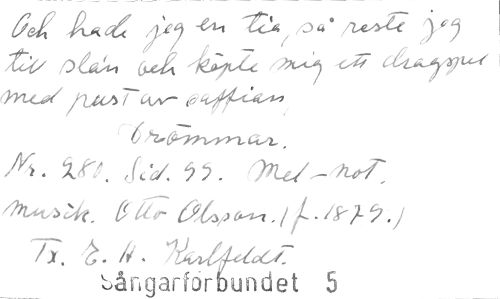 Och hade jag en tia, så reste jag
till stan och köpte mig ett dragspel
med pust av saffian,
Drömmar.
Nr. 280. Sid. 99. Mel-not.
musik. Otto Olsson. (f. 1879.)
Tx. E. A. Karlfeldt.
Sångarförbundet 5